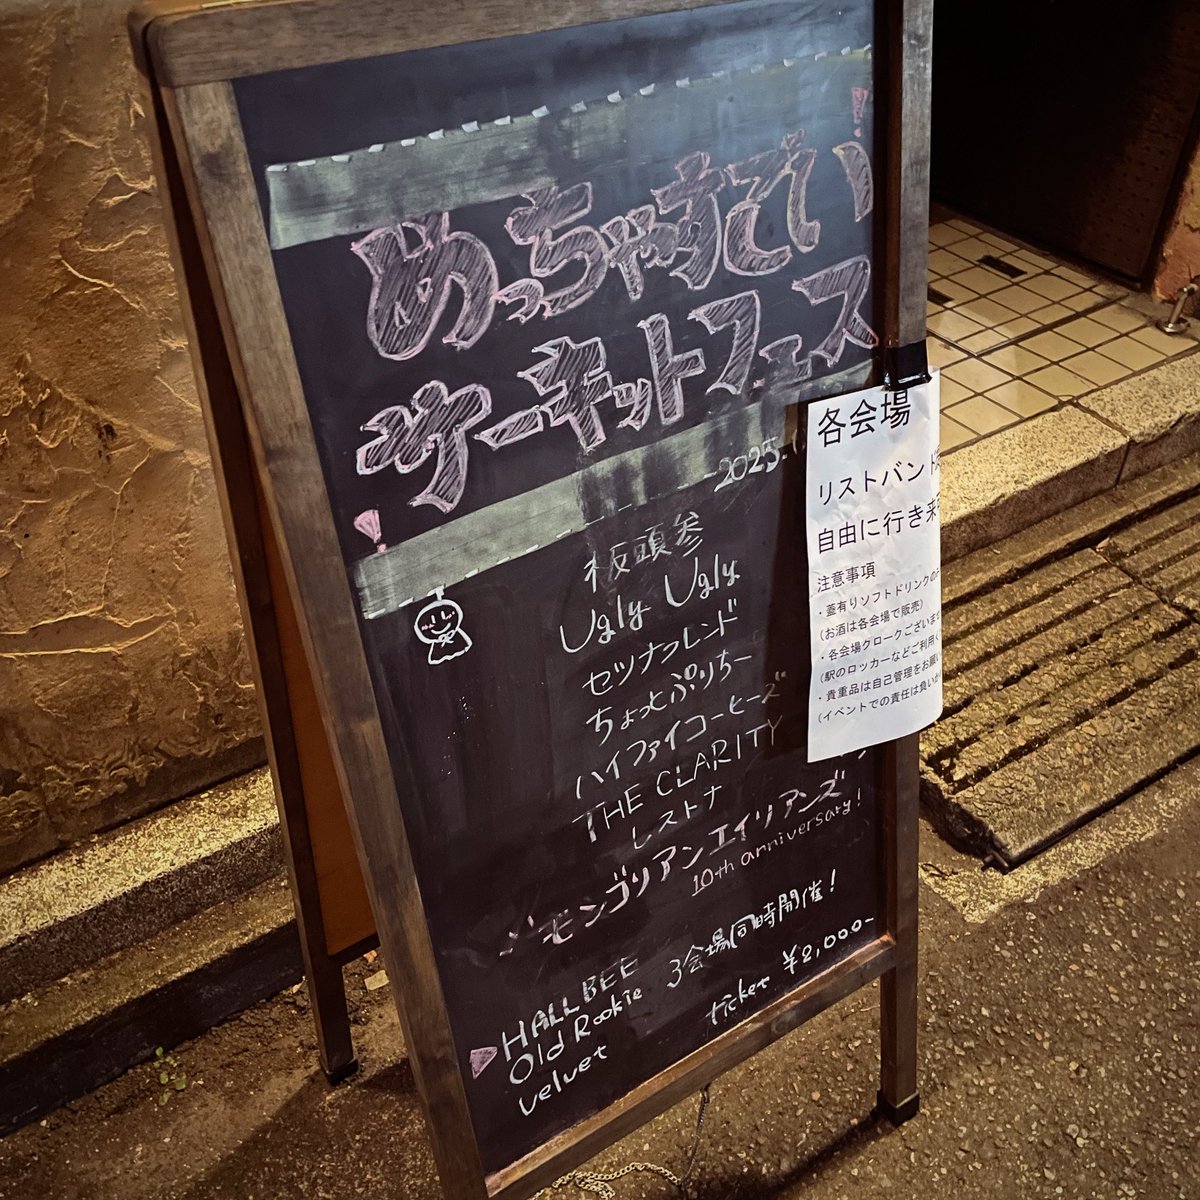 めっちゃすごい!
サーキットフェス!
2025.
板頭参
Ugly Ugly
セツナフレンド
ちょっとぷりちー
ハイファイコーヒーズ
THE CLARITY
レストナ
モンゴリアンエイリアンズ
10th anniversary!
HALL BEE
Old Rookie
velvet
3会場同時開催!
ticket ¥2,000-
各会場
リストバンド
自由に行き来
注意事項
・蓋有りソフトドリンクの
(お酒は各会場で販売)
・各会場クロークございませ
(駅のロッカーなどご利用く
・貴重品は自己管理をお願い
(イベントでの責任は負いか